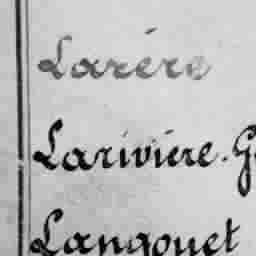 Larére
Larivière. G
Langouet